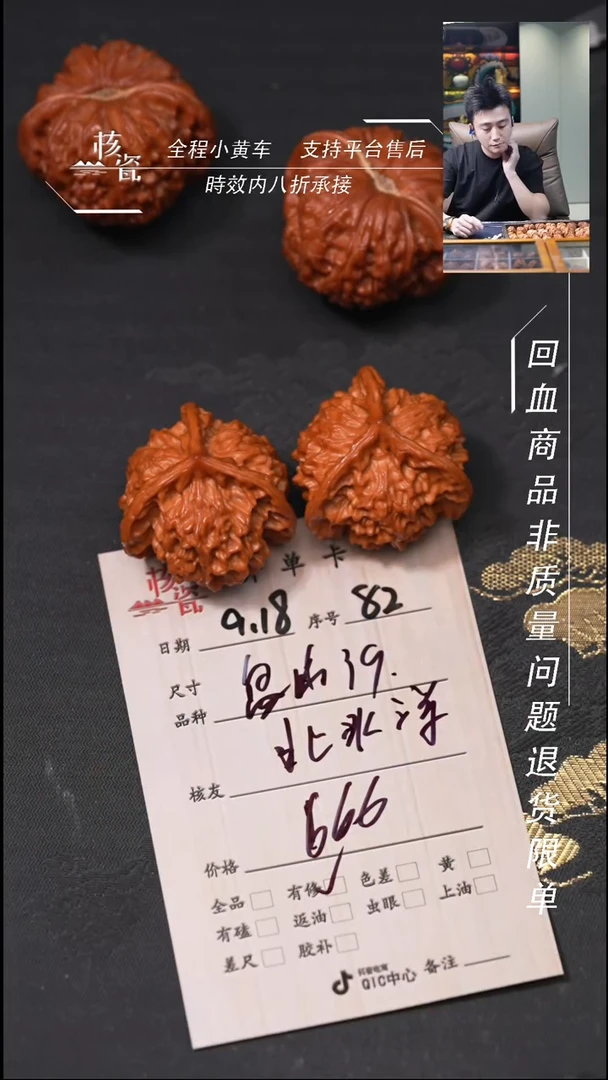 核瓷
全程小黄车 支持平台售后
時效内八折承接
回血商品非质量问题退货限单
核瓷 单卡
日期 9.18 序号 82
尺寸 39.
品种 北冰洋
核友
价格 666
全品 有修 ✓ 色差 黄
有磕 返油 虫眼 上油
差尺 胶补
抖音电商
QIC中心 备注